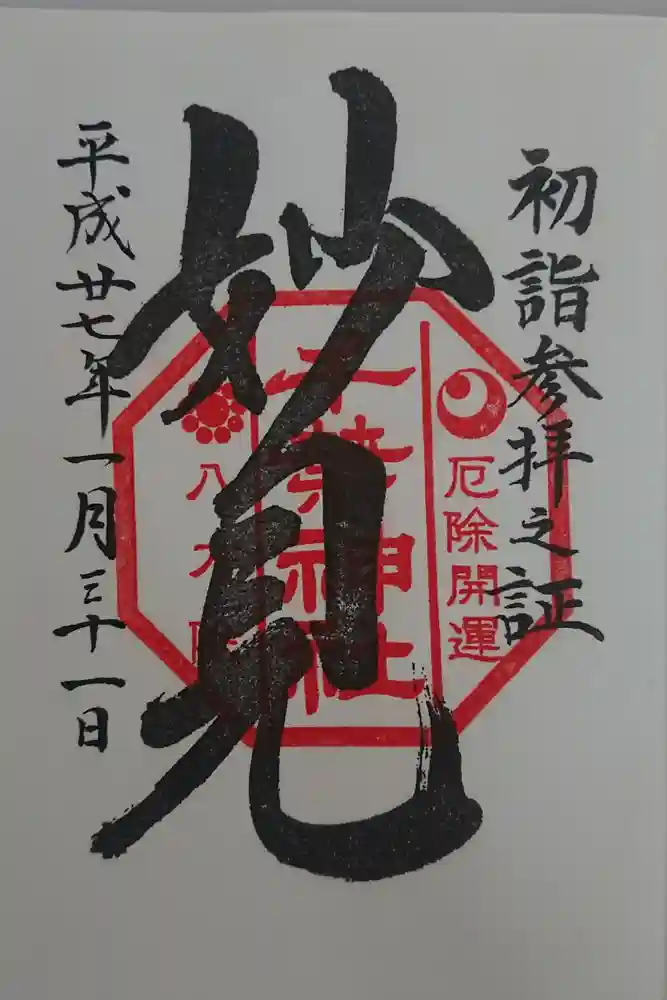 初詣参拝之証
妙見
千葉神社
厄除開運
八方除
平成廿七年一月三十一日